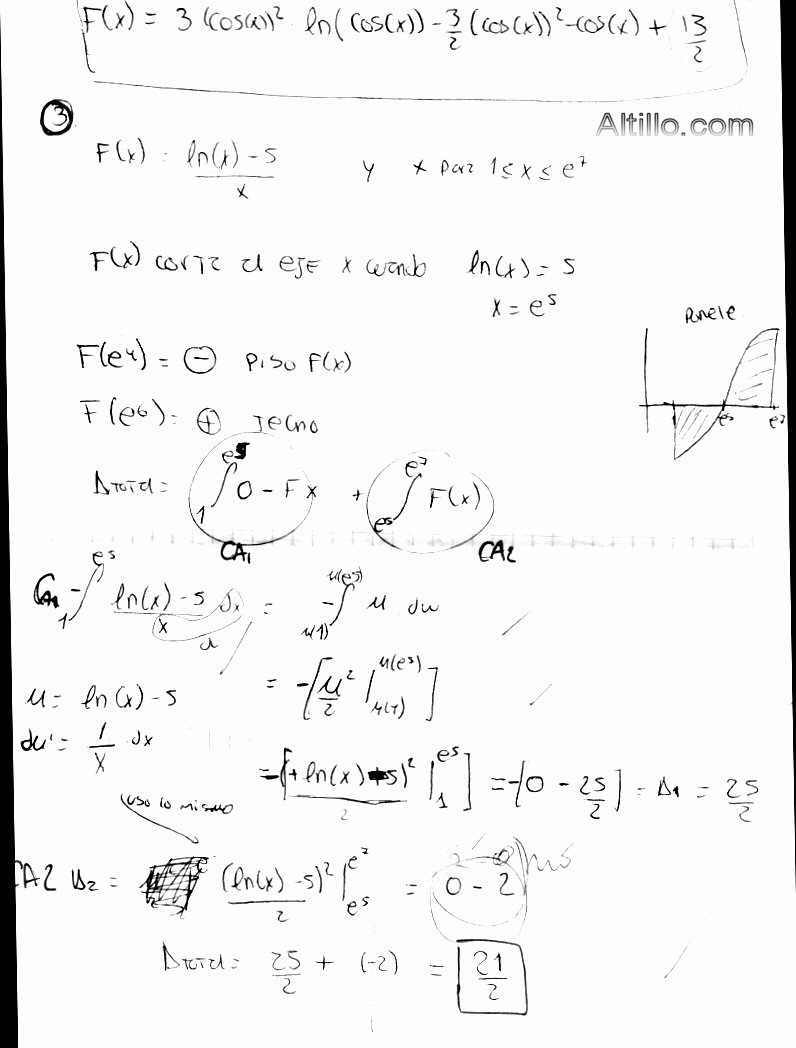 F(x) = 3 (cos(x))² ln(cos(x)) - 3/2 (cos(x))² - cos(x) + 13/2
③
Altillo.com
F(x) = ln(x) - 5 / x y x para 1 ≤ x ≤ e⁷
F(x) corta el eje x cuando ln(x) = 5
x = e⁵
F(e⁴) = ⊖ piso F(x)
F(e⁶) = ⊕ techo
e⁵ e⁷
Atotal = ∫₁^e⁵ 0 - Fx + ∫e⁵^e⁷ F(x)
CA1 CA2
CA1 - ∫₁^e⁵ ln(x) - 5 / x dx = - ∫u(1)^u(e⁵) u du
u
u = ln(x) - 5 = - [u²/2 |u(1)^u(e⁵)]
du = 1/x dx
= - [(+ ln(x) - 5)²/2 |₁^e⁵] = - [0 - 25/2] = A1 = 25/2
uso lo mismo
CA2 A2 = (ln(x) - 5)²/2 |e⁵^e⁷ = 0 - 2 no
Atotal = 25/2 + (-2) = 21/2